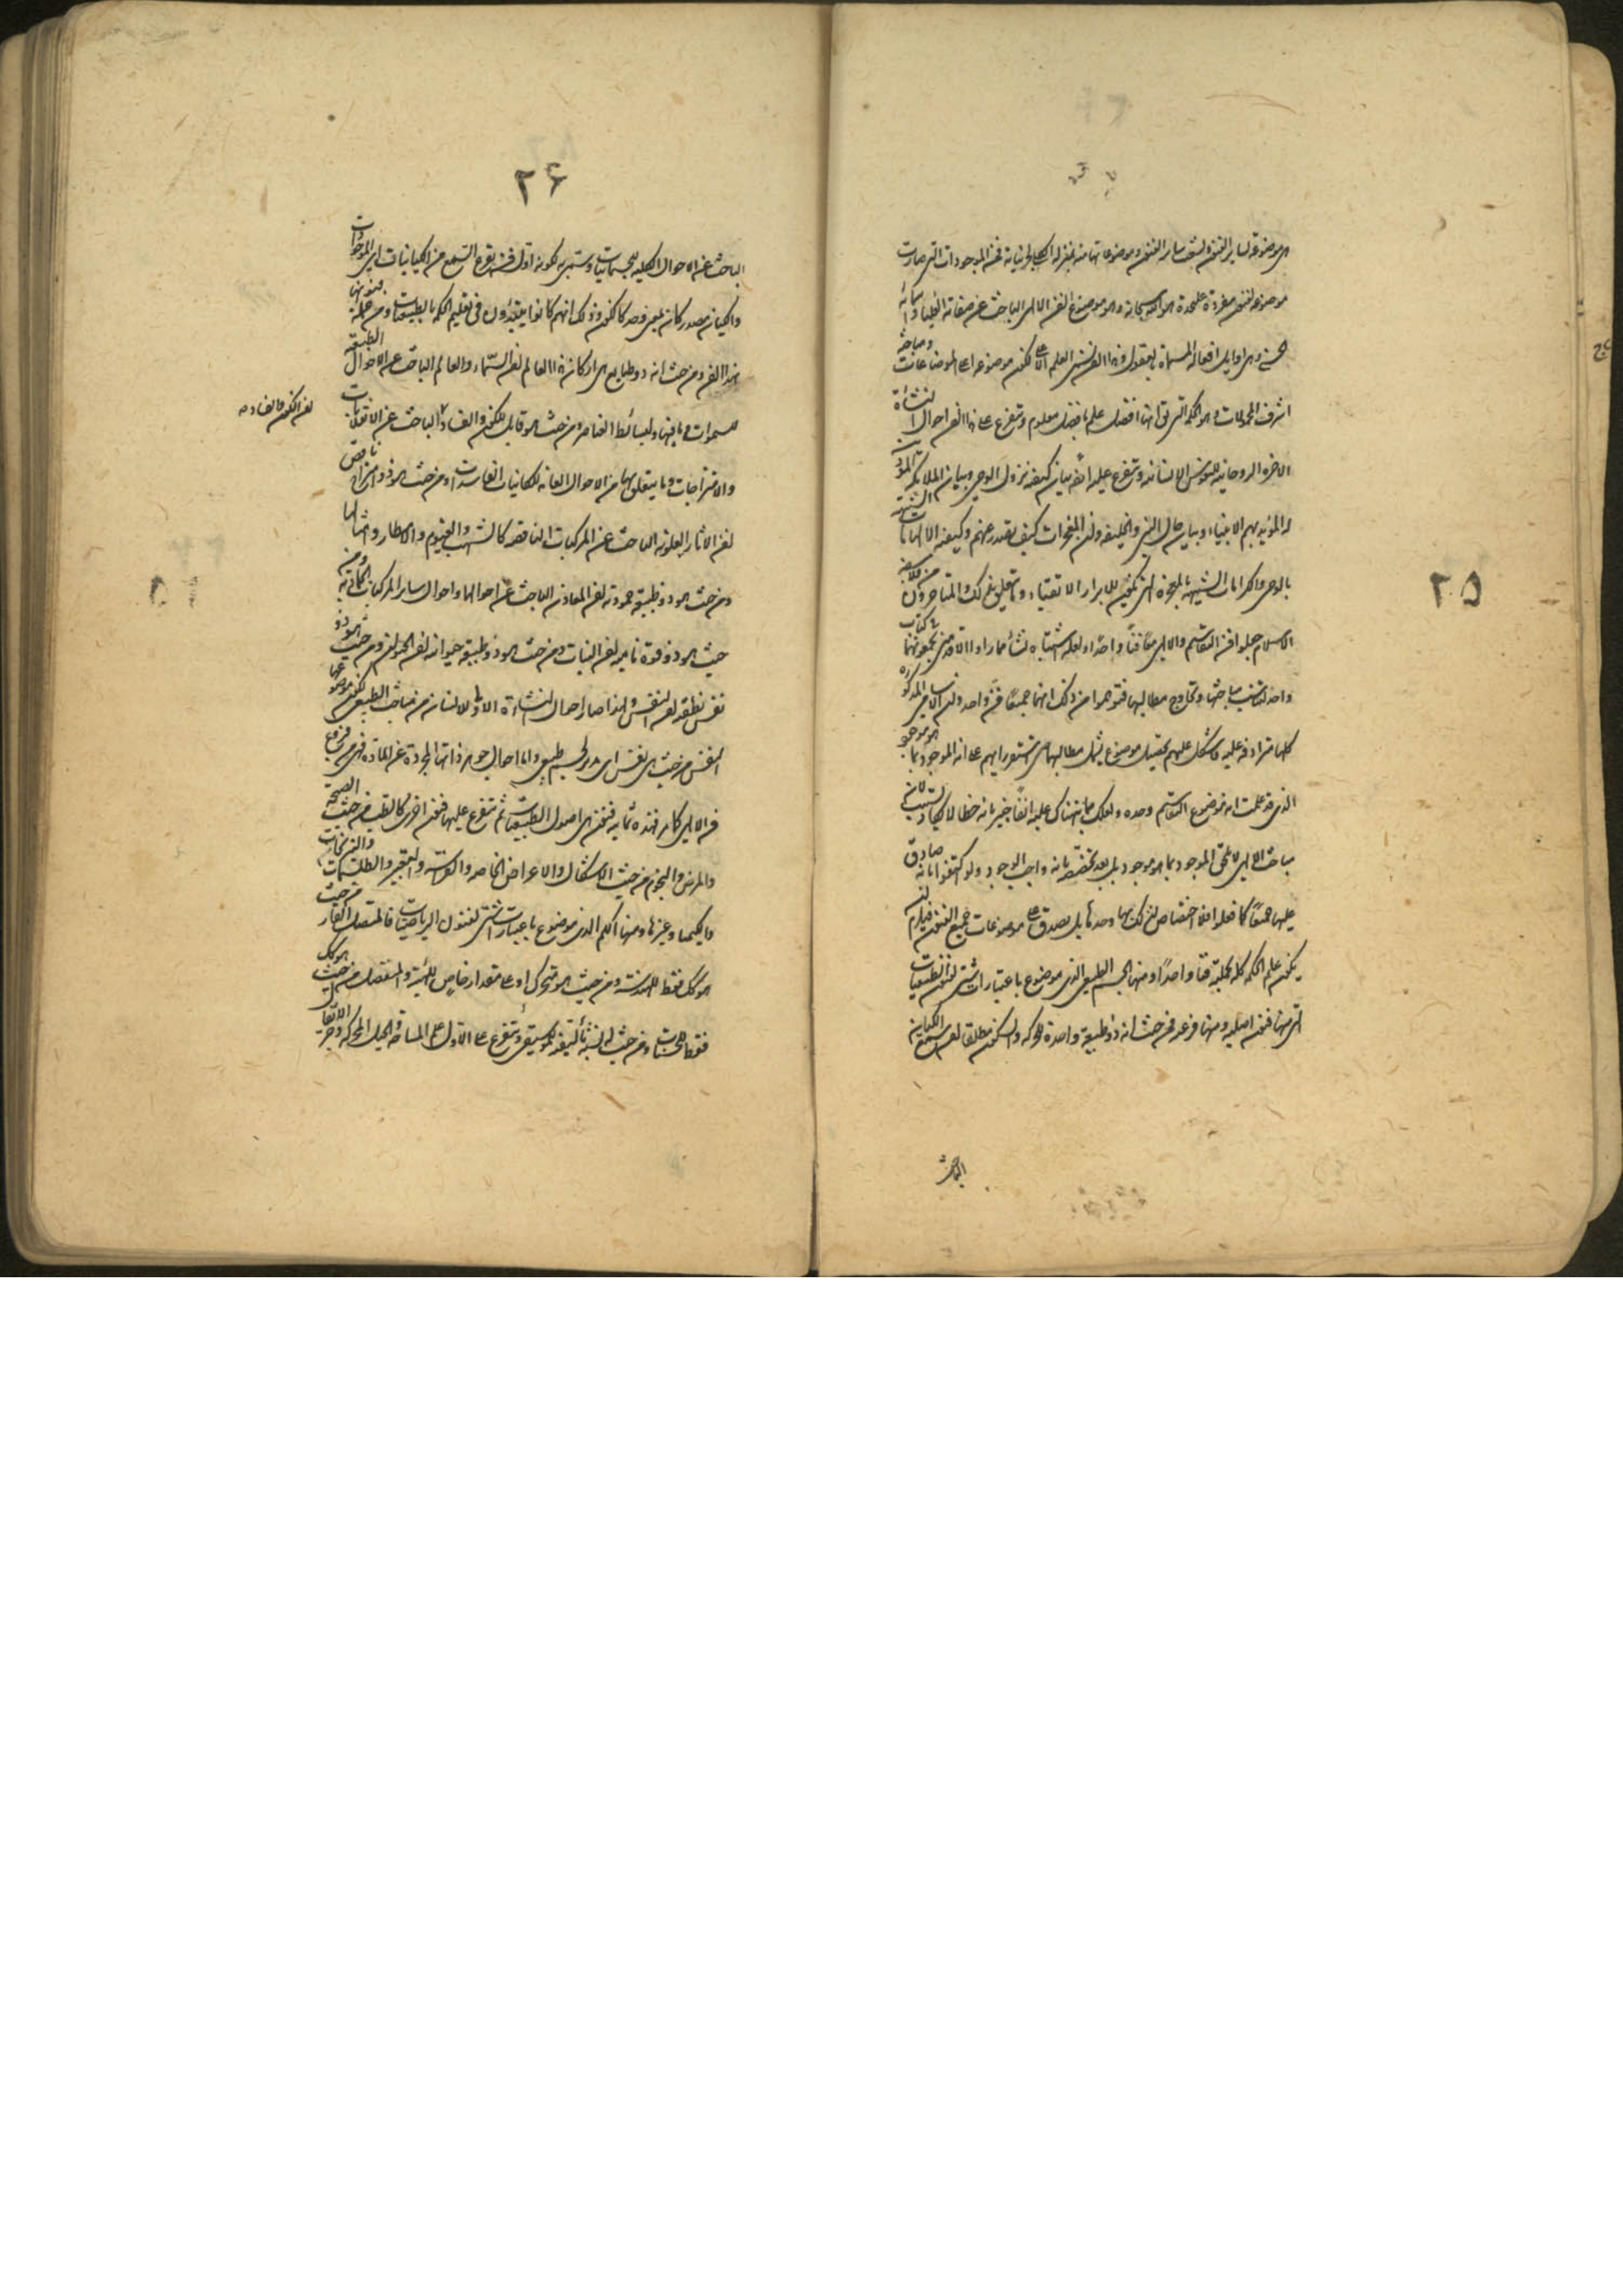 ٢٥
هي موضوعة لسائر الفنون ليست سائر الفنون وموضوعاتها منه بمنزلة الجزئيات فمن الموجودات التي صارت
موضوعه لفنون مفردة على حدة هو الله سبحانه وهو موضوع الفن الالهي الباحث عن صفاته العليا واسمائه
الحسنى وهي اوايل افعاله المسماة بالعقول وهذا الفن العلم الاعلى لكون موضوعه اعلى الموضوعات ومباحثه
اشرف المحمولات وهو الحكمة التي انها افضل علم بافضل معلوم ويتفرع على هذا الفن احوال النشأة
الاخرة الروحانية للنفوس الانسانية ويتفرع عليه ايضا بيان كيفية نزول الوحي وبيان الملائكة
المؤيد بهم الانبياء وبيان حال النبي والخليفة وان المعجزات كيف تصدر عنهم وكيفية الالهامات الشبيهة
بالوحي والكرامات الشبيهة بالمعجزة التي تكون للابرار الاتقياء وما يتعلق بذلك والمتاخرون من فلاسفة
الاسلام جعلوا فن التقاسيم والالهي معا فنا واحدا ولعله اشتباه نشأ مما راوا الاقدمين يجمعونهما في كتاب
واحد لتناسب مباحثها وتمازج مطالبها فتوهموا من ذلك انهما جميعا فن واحد ولان الاسامي المذكورة
كلها مترادفة عليه فاشكل عليهم تحصيل موضوع يشمل مطالبهما حتى استقر رايهم على انه الموجود بما هو موجود
الذي قد علمت انه موضوع التقاسيم وحده ولعلك مما نبهناك عليه انفا خبير بانه خطأ لا يكاد يستتب لان
مباحث الالهي لا تلحق الموجود بما هو موجود بل بعد تخصيصه بانه واجب الوجود ولو اكتفوا بانه صادق
عليها جميعا كما فعلوا فلا اختصاص لذلك بهما وحدهما بل يصدق على موضوعات جميع الفنون فيلزم ان
يكون علم الحكمة كله بكليته فنا واحدا ومنها الجسم الطبيعي الذي موضوع باعتبارات شتى لفنون الطبيعيات
التي منها فنون اصليه ومنها فرعيه فمن حيث انه ذو طبيعة واحدة للحركة والسكون مطلقا لفن سمع الكيان
الباحث
٢٦
الباحث عن الاحوال الكلية للجسمانيات وسمي به لكونه اول فن يقرع السمع من الكيانيات اي الموجودات
والكيان مصدر كان بمعنى وجد كالكون وذلك انهم كانوا يبتدؤن في تعليم الحكمة بالطبيعيات ومن جملة فنونها
بهذا الفن ومن حيث انه ذو طبايع هي اركان هذا العالم لفن السماء والعالم الباحث عن الاحوال الطبيعية
للسموات وما فيها ولبسائط العناصر ومن حيث هو قابل للكون والفساد الباحث عن الانقلابات
لفن الكون والفساد صح
والامتزاجات وما يتعلق بها من الاحوال العامة للكائنات الفاسدات ومن حيث هو ذو مزاج ناقص
لفن الاثار العلوية الباحث عن المركبات الناقصة كالشهب والغيوم والامطار وامثالها
ومن حيث هو ذو طبيعة جمودية لفن المعادن الباحث عن احوالها واحوال سائر المركبات الجمادية ومن
حيث هو ذو قوة نامية لفن النبات ومن حيث هو ذو طبيعة حيوانية لفن الحيوان ومن حيث هو ذو
نفس نطقية لفن النفس ولهذا صار احوال النشاءة الاولى للانسان من مباحث الطبيعي لكون موضوعها
النفس من حيث هي نفس اي مدبر لجسم طبيعي واما احوال جوهر ذاتها المجردة عن المادة فهي من فروع
فن الالهي كما مر فهذه ثمانيه فنون هي اصول الطبيعيات ثم يتفرع عليها فنون اخرى كالطب من حيث الصحة
والمرض والنجوم من حيث الاشكال والاعراض الخاصة والفراسة والتعبير والطلسمات والنيرنجات
والكيميا وغيرها ومنها الكم الذي موضوع باعتبارات شتى لفنون الرياضيات فالمتصل القار من حيث
هو كذلك فقط للهندسة ومن حيث هو متحرك او على مقدار خاص للهيئة والمنفصل من حيث هو كذلك
فقط للحساب ومن حيث له نسبة تأليفية للموسيقي ويتفرع على الاول علم المساحة والحيل المحركة وجر الاثقال